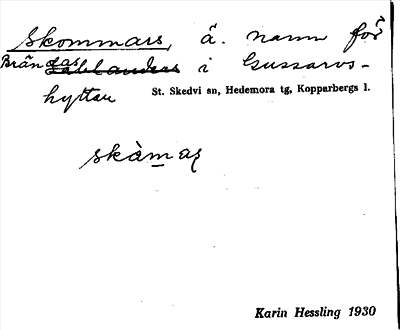 Skommars, ä. namn för
Brändas i Gussarvs-
hyttan
St. Skedvi sn, Hedemora tg, Kopparbergs l.
skàmaṣ
Karin Hessling 1930